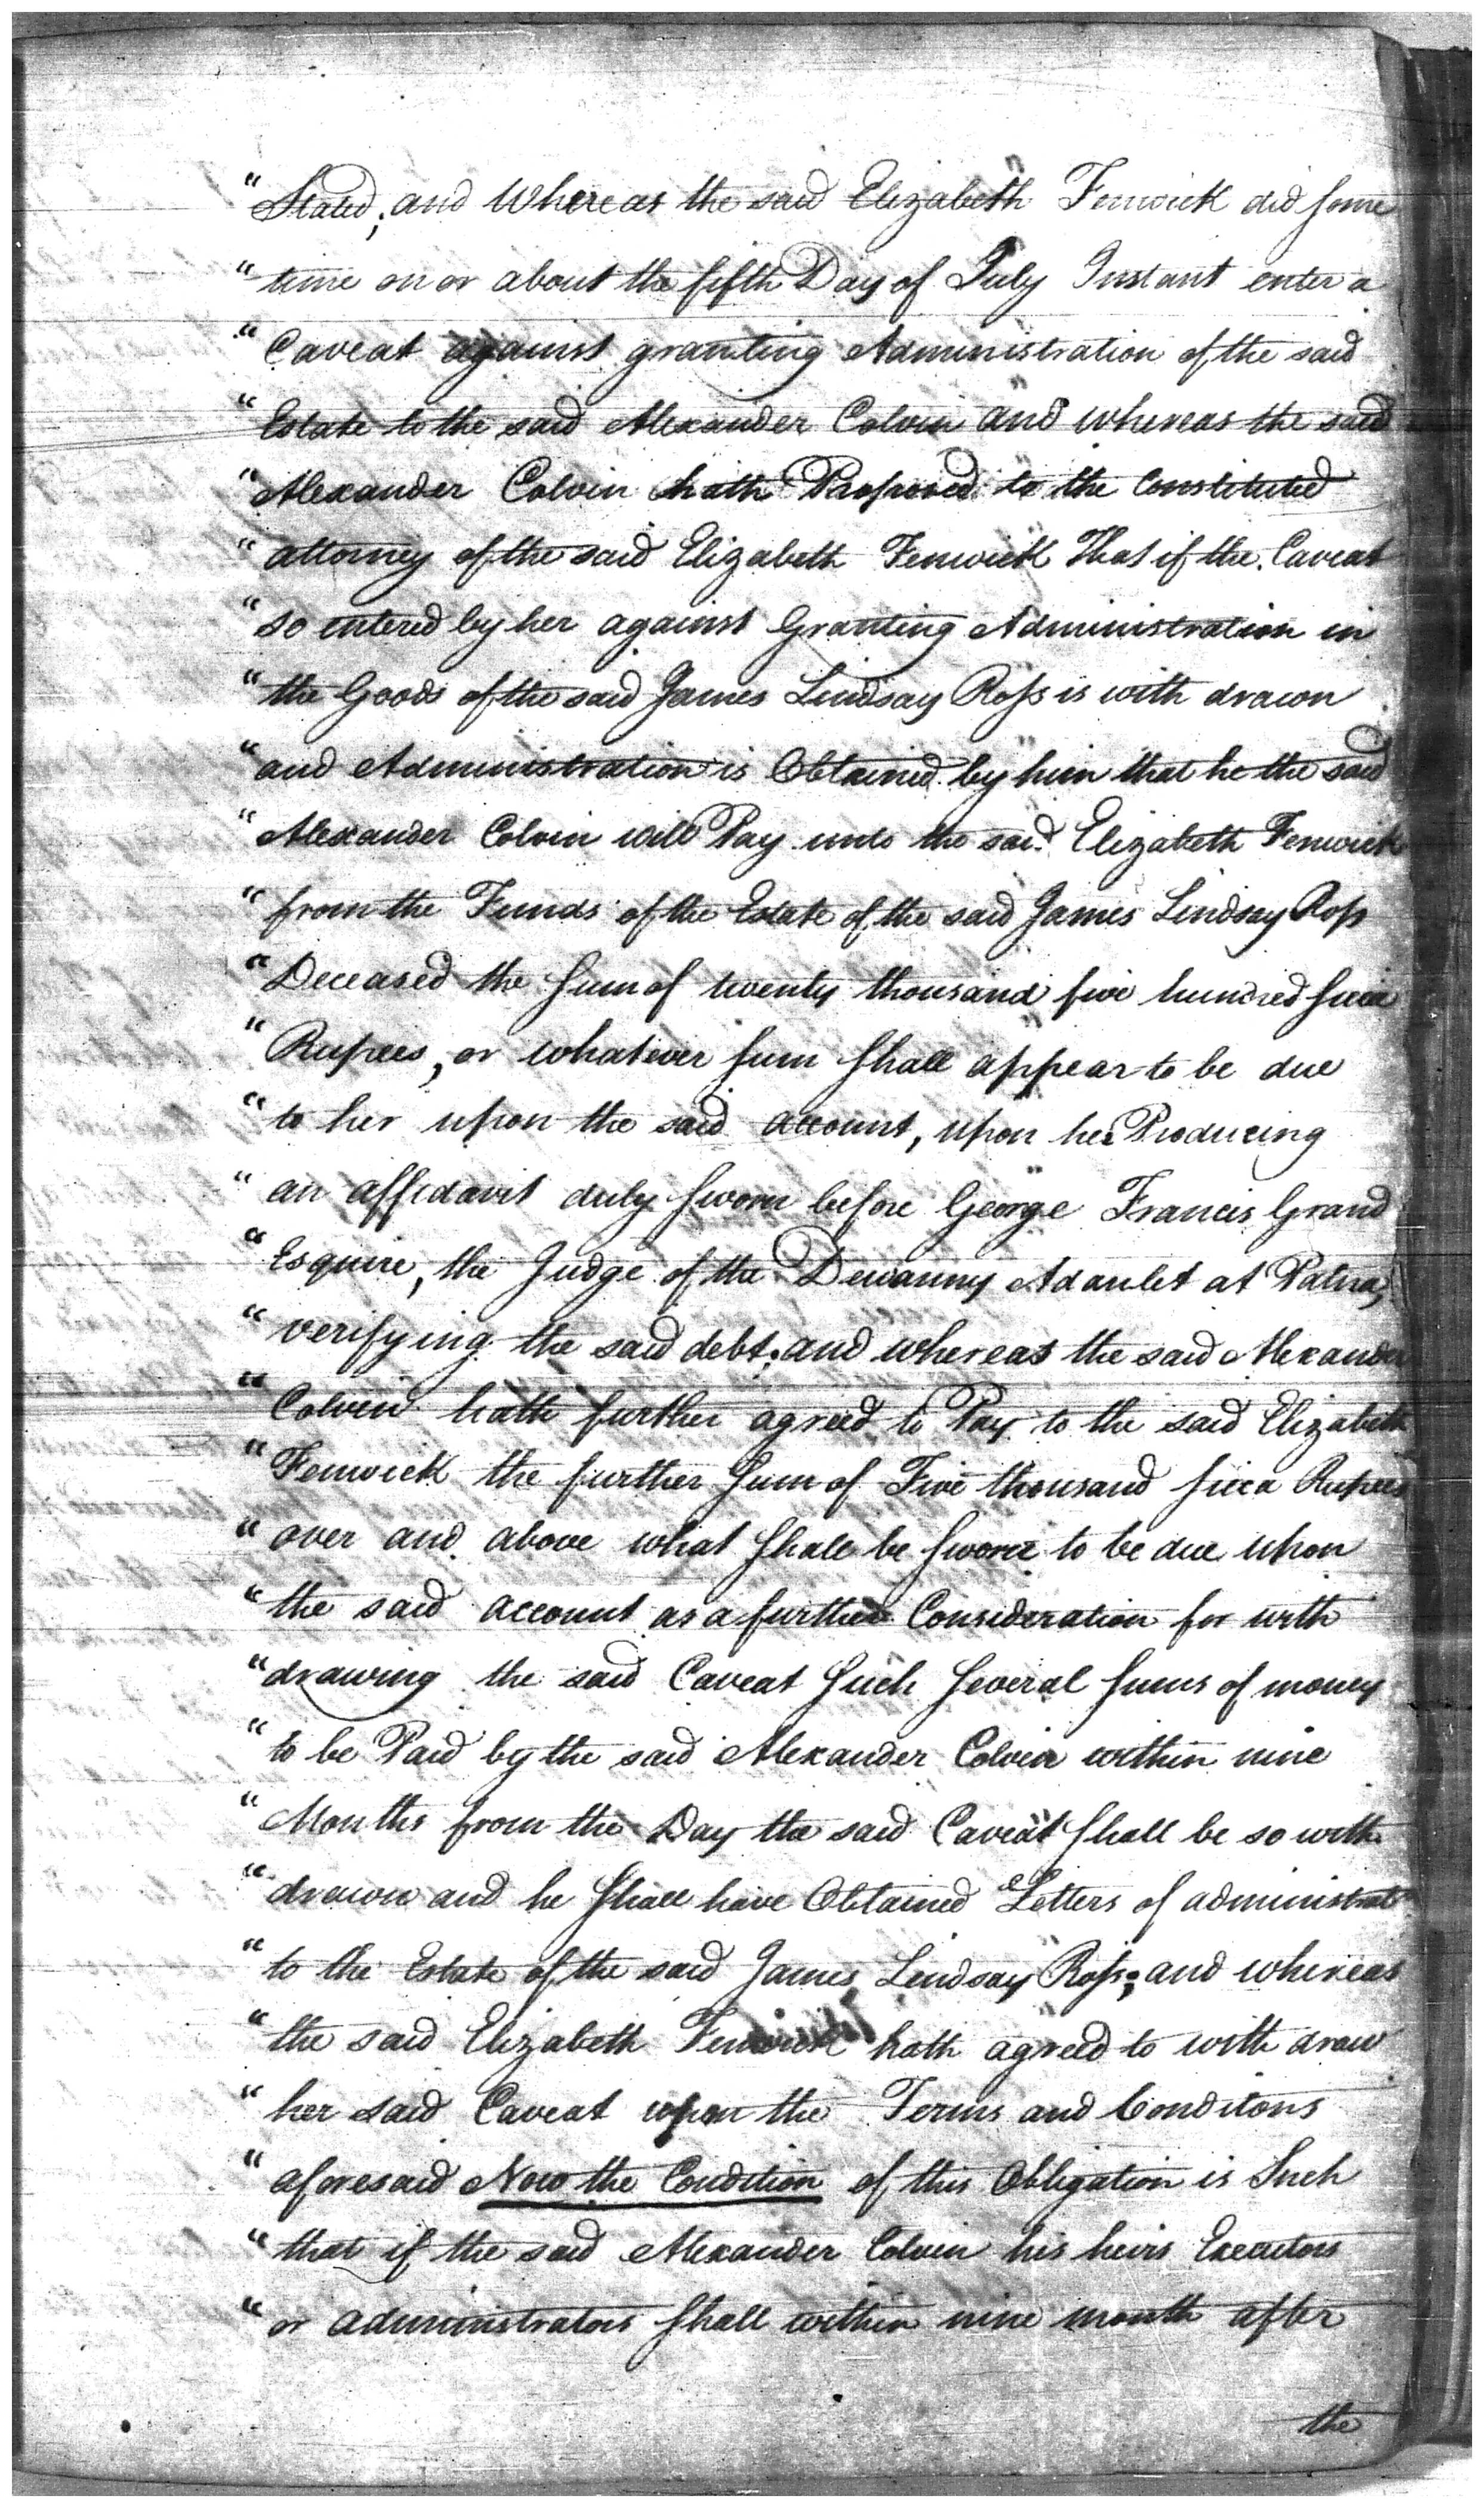 "Stated; and Whereas the said Elizabeth Fenwick did some
"time on or about the fifth Day of July Instant enter a
"Caveat against granting Administration of the said
"Estate to the said Alexander Colvin and whereas the said
"Alexander Colvin hath Proposed to the Constituted
"attorney of the said Elizabeth Fenwick That if the Caveat
"so entered by her against Granting Administration in
"the Goods of the said James Lindsay Ross is with drawn
"and Administration is Obtained by him that he the said
"Alexander Colvin will Pay unto the said Elizabeth Fenwick
"from the Funds of the Estate of the said James Lindsay Ross
"Deceased the Sum of twenty thousand five hundred Sicca
"Rupees, or whatever sum shall appear to be due
"to her upon the said account, upon her Producing
"an affidavit duly sworn before George Francis Grand
"Esquire, the Judge of the Dewanny Adaulet at Patna,
"verifying the said debt; and whereas the said Alexander
"Colvin hath further agreed to Pay to the said Elizabeth
"Fenwick the further Sum of Five thousand Sicca Rupees
"over and above what shall be sworn to be due upon
"the said account as a further Consideration for with
"drawing the said Caveat Such several sums of money
"to be Paid by the said Alexander Colvin within nine
"Months from the Day the said Caveat shall be so with
"drawn and he shall have Obtained Letters of administrat
"to the Estate of the said James Lindsay Ross; and whereas
"the said Elizabeth Fenwick hath agreed to with draw
"her said Caveat upon the Terms and Conditons
"aforesaid Now the Condition of this Obligation is Such
"that if the said Alexander Colvin his heirs Executors
"or administrators shall within nine month after
the